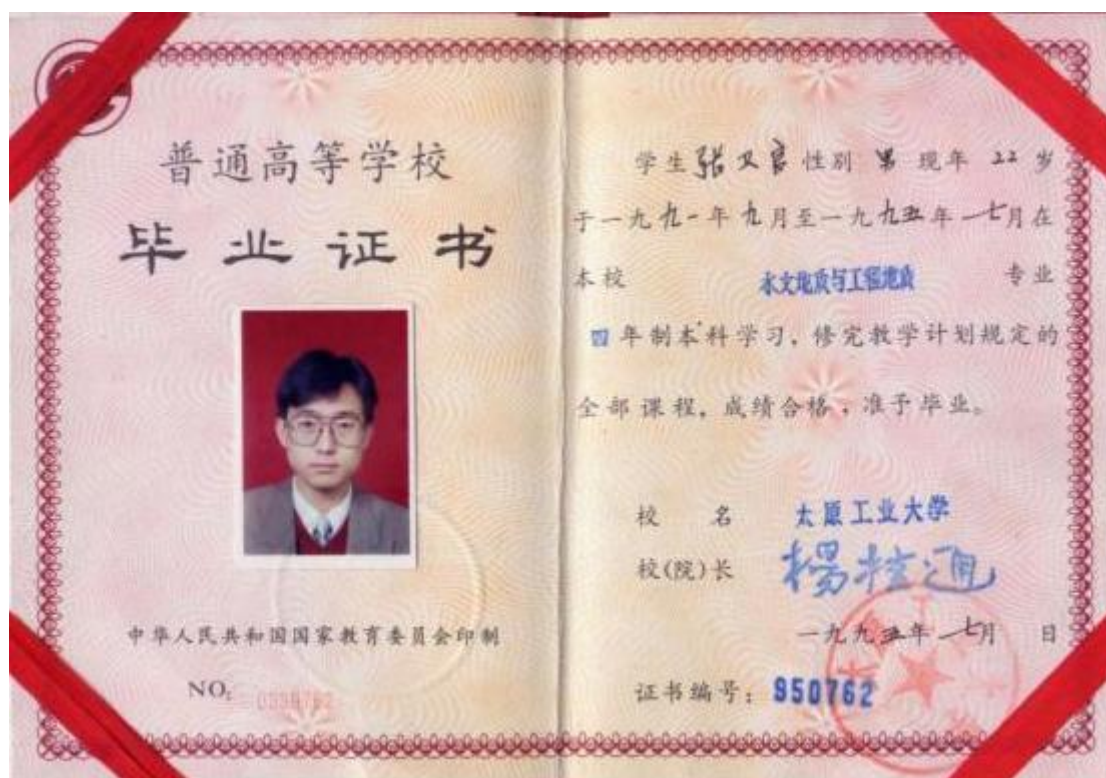 普通高等学校
毕业证书
中华人民共和国国家教育委员会印制
NO:
学生张又良性别 男 现年 22 岁
于一九九一年九月至一九九五年七月在
本校 水文地质与工程地质 专业
四年制本科学习，修完教学计划规定的
全部课程，成绩合格，准予毕业。
校 名 太原工业大学
校(院)长 杨桂通
一九九五年七月 日
证书编号：950762